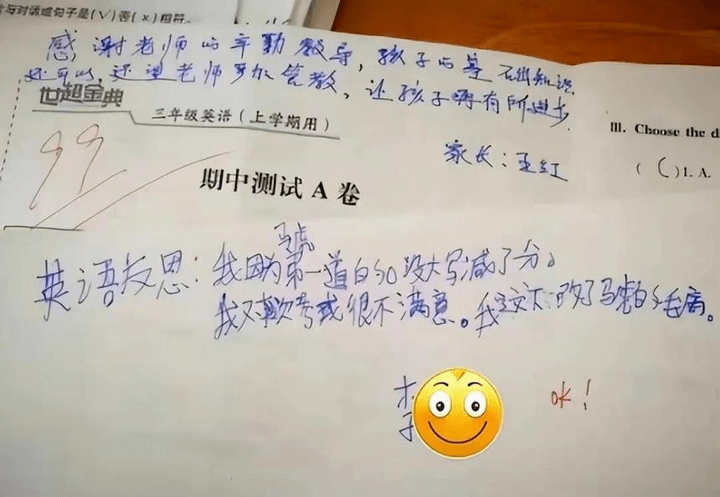 与对话或句子是(√)否(×)相符.
感谢老师的辛勤教导，孩子的基础知识
还可以，还望老师多加管教，让孩子能有所进步
世超金典
三年级英语（上学期用）
家长：王红
III. Choose the d
( C )1. A.
99
期中测试 A 卷
马虎
英语反思：我因为第一道的so没大写减了分。
我对这次考试很不满意。我这次下改了马虎的毛病。
李
ok！